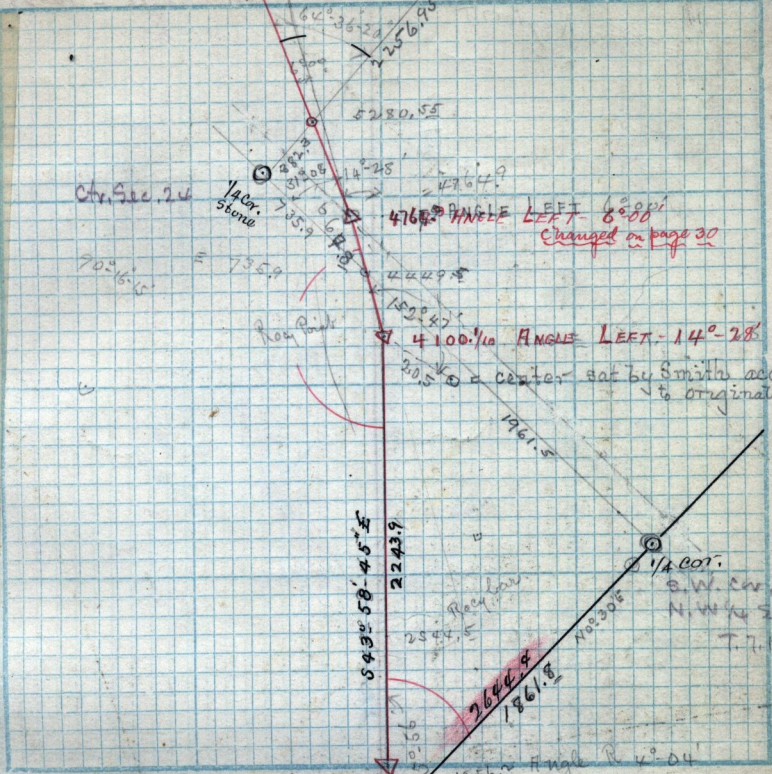 64°-36'-20"
2256.95
5280.55
882.3
14°-28'
Ctr. Sec. 24
1/4 Cor.
Stone
735.9
4764.9
ANGLE LEFT 6°-00'
4764.9 ANGLE LEFT - 6°-00'
Changed on page 30
90°-16'-15"
= 735.9
4449.5
152°-47'
Rocy Point
4100.1/10 ANGLE LEFT - 14°-28'
20.5
= center sat by Smith acc
to original
1961.5
S 43° 58'-45" E
2243.9
1/4 Cor.
S.W. Cor.
N.W 1/4 S
T. 7.
Rocy bar
2544.5
N 0° 30' E
2644.4
1861.8
Angle R 4°-04'